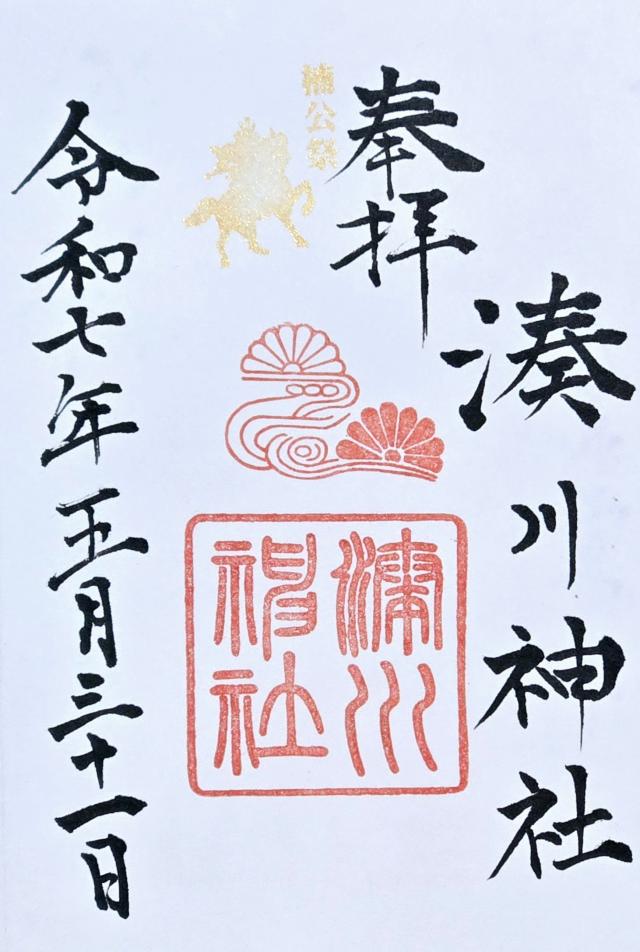 湊川神社
奉拝
楠公祭
湊川
神社
令和七年五月三十一日